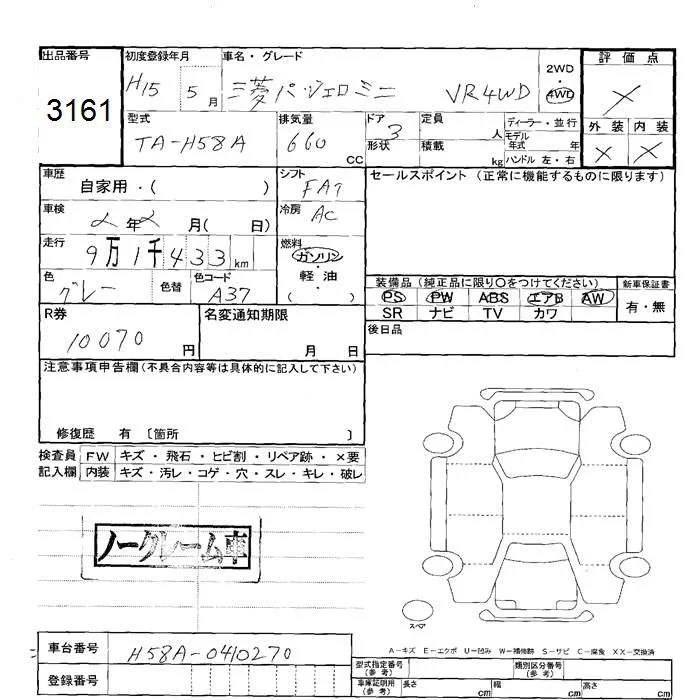 出品番号 初度登録年月 車名・グレード 評価点
3161 H15 5月 三菱パジェロミニ VR4WD 2WD・4WD ×
型式 排気量 ドア 定員 人 ディーラー・並行 外装 内装
TA-H58A 660 CC 3 形状 積載 kg モデル年式 年 ハンドル 左・右 × ×
車歴 自家用・( ) シフト FAT セールスポイント(正常に機能するものに限ります)
車検 2年2月( 日) 冷房 AC
走行 9万1千433km 燃料 ガソリン・軽油 ( )
色 グレー 色替 色コード A37 装備品(純正品に限り○をつけてください) 新車保証書
PS PW ABS エアB AW 有・無
SR ナビ TV カワ
R券 10070円 名変通知期限 月 日 後日品
注意事項申告欄(不具合内容等は具体的に記入して下さい)
修復歴 有 〔箇所 〕
検査員 FW キズ・飛石・ヒビ割・リペア跡・×要
記入欄 内装 キズ・汚レ・コゲ・穴・スレ・キレ・破レ
ノークレーム車
スペア
A－キズ E－エクボ U－凹み W－補修跡 S－サビ C－腐食 XX－交換済
車台番号 H58A-0410270 型式指定番号(参考) 類別区分番号(参考)
登録番号 車庫証明用(参考) 長さ cm 幅 cm 高さ cm